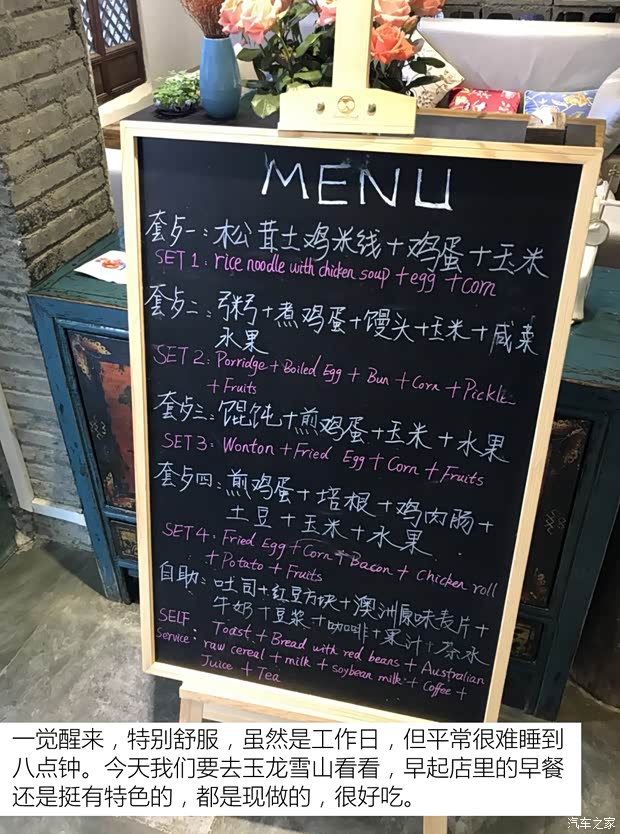 MENU
套歺一：松茸土鸡米线+鸡蛋+玉米
SET 1: rice noodle with chicken soup +egg +corn
套歺二：粥+煮鸡蛋+馒头+玉米+咸菜
水果
SET 2: Porridge + Boiled Egg + Bun + Corn + Pickle
+Fruits
套歺三：馄饨+煎鸡蛋+玉米+水果
SET 3: Wonton + Fried Egg + Corn + Fruits
套歺四：煎鸡蛋+培根+鸡肉肠+
土豆+玉米+水果
SET 4: Fried Egg + Corn + Bacon + Chicken roll
+ Potato + Fruits
自助：吐司+红豆方块+澳洲原味麦片+
牛奶+豆浆+咖啡+果汁+茶水
SELF Toast + Bread with red beans + Australian
Service: raw cereal + milk + soybean milk + Coffee +
Juice + Tea
一觉醒来，特别舒服，虽然是工作日，但平常很难睡到
八点钟。今天我们要去玉龙雪山看看，早起店里的早餐
还是挺有特色的，都是现做的，很好吃。
汽车之家